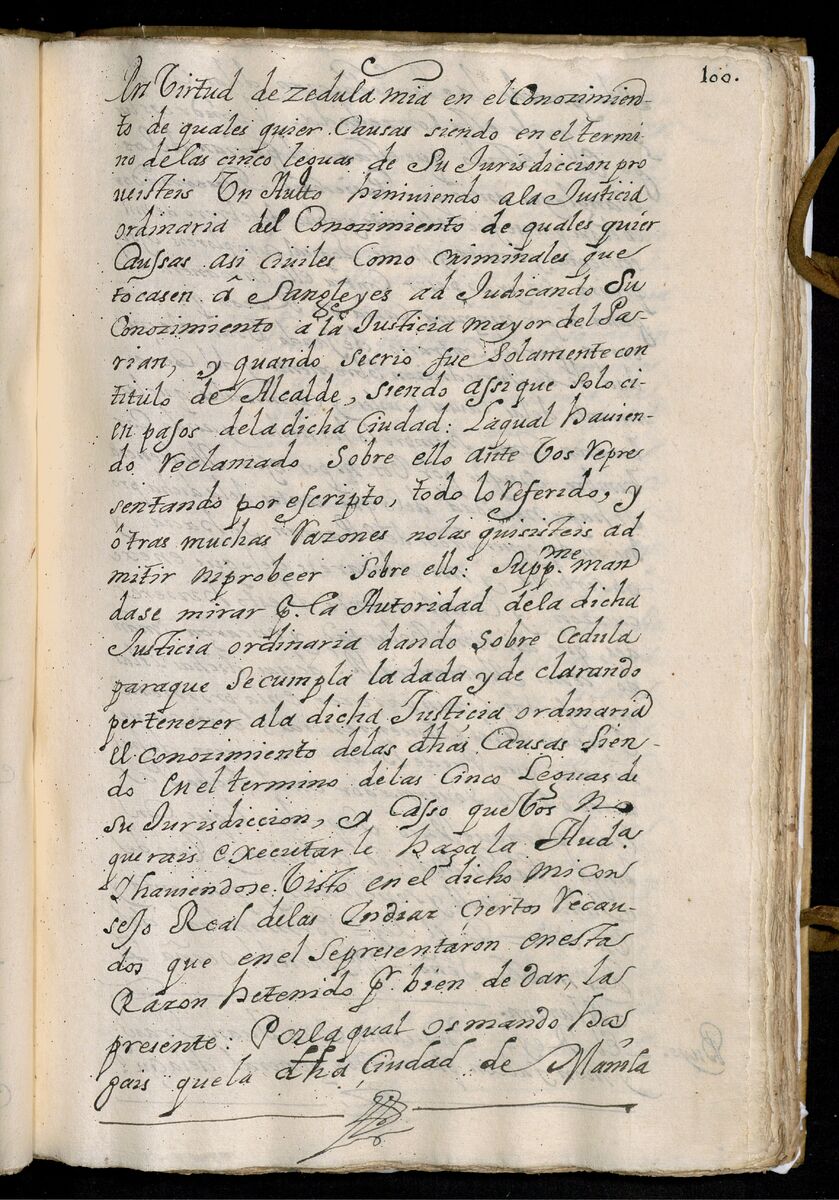 100.
En Virtud de zedula mia en el Conozimien-
to de quales quier Causas siendo en el termi
no de las cinco leguas de Su Jurisdiccion pro
ueisteis Un Autto hiniuiendo a la Justicia
ordinaria del Conozimiento de quales quier
Caussas asi ciuiles Como criminales que
tocasen â Sangleyes ad Judicando Su
Conozimiento a la Justicia mayor del Pa-
rian, y quando secrio fue Solamente con
titulo de Alcalde, siendo assi que solo ci-
en pasos de la dicha Ciudad: La qual hauien-
do Reclamado Sobre ello ante Vos Repre
sentando por escripto, todo lo Referido, y
ôtras muchas Razones no las quisisteis ad
mitir niprobeer Sobre ello: Supp.me man
dase mirar p. la Autoridad de la dicha
Justicia ordinaria dando Sobre Cedula
paraque Se cumpla la dada y de clarando
pertenezer a la dicha Justicia ordinaria
el Conozimiento de las dhas Causas Sien-
do en el termino de las Cinco Leguas de
Su Jurisdiccion, y Casso que Vos no
querais executar le haga la Aud.a
Y hauiendose Visto en el dicho mi con
sejo Real de las Indias ciertos Recau-
dos que en el Sepresentaron en esta
Razon he tenido p.r bien de dar, la
presente: Por la qual os mando has
gais que la dha Ciudad de Manila